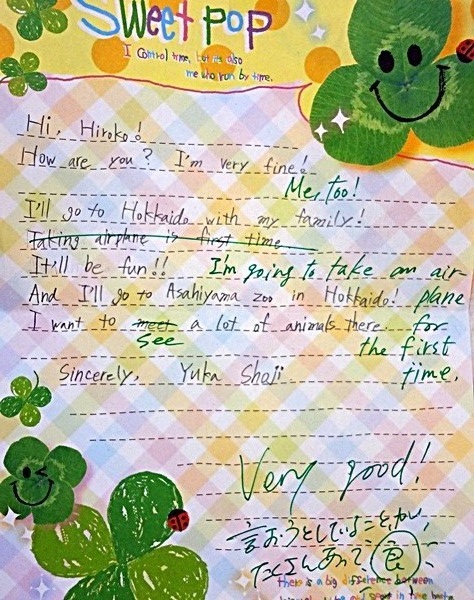 SWeet pop
I control time, but it's also
me who run by time.
Hi, Hiroko!
How are you? I'm very fine!
Me, too!
I'll go to Hokkaido with my family!
Taking airplane is first time
It'll be fun!! I'm going to take an air
And I'll go to Asahiyama zoo in Hokkaido! plane
I want to meet a lot of animals there. for
see
the first
Sincerely, Yuka Shoji time.
Very good!
言おうとしていることが、
たくさんあって、
There is a big difference between